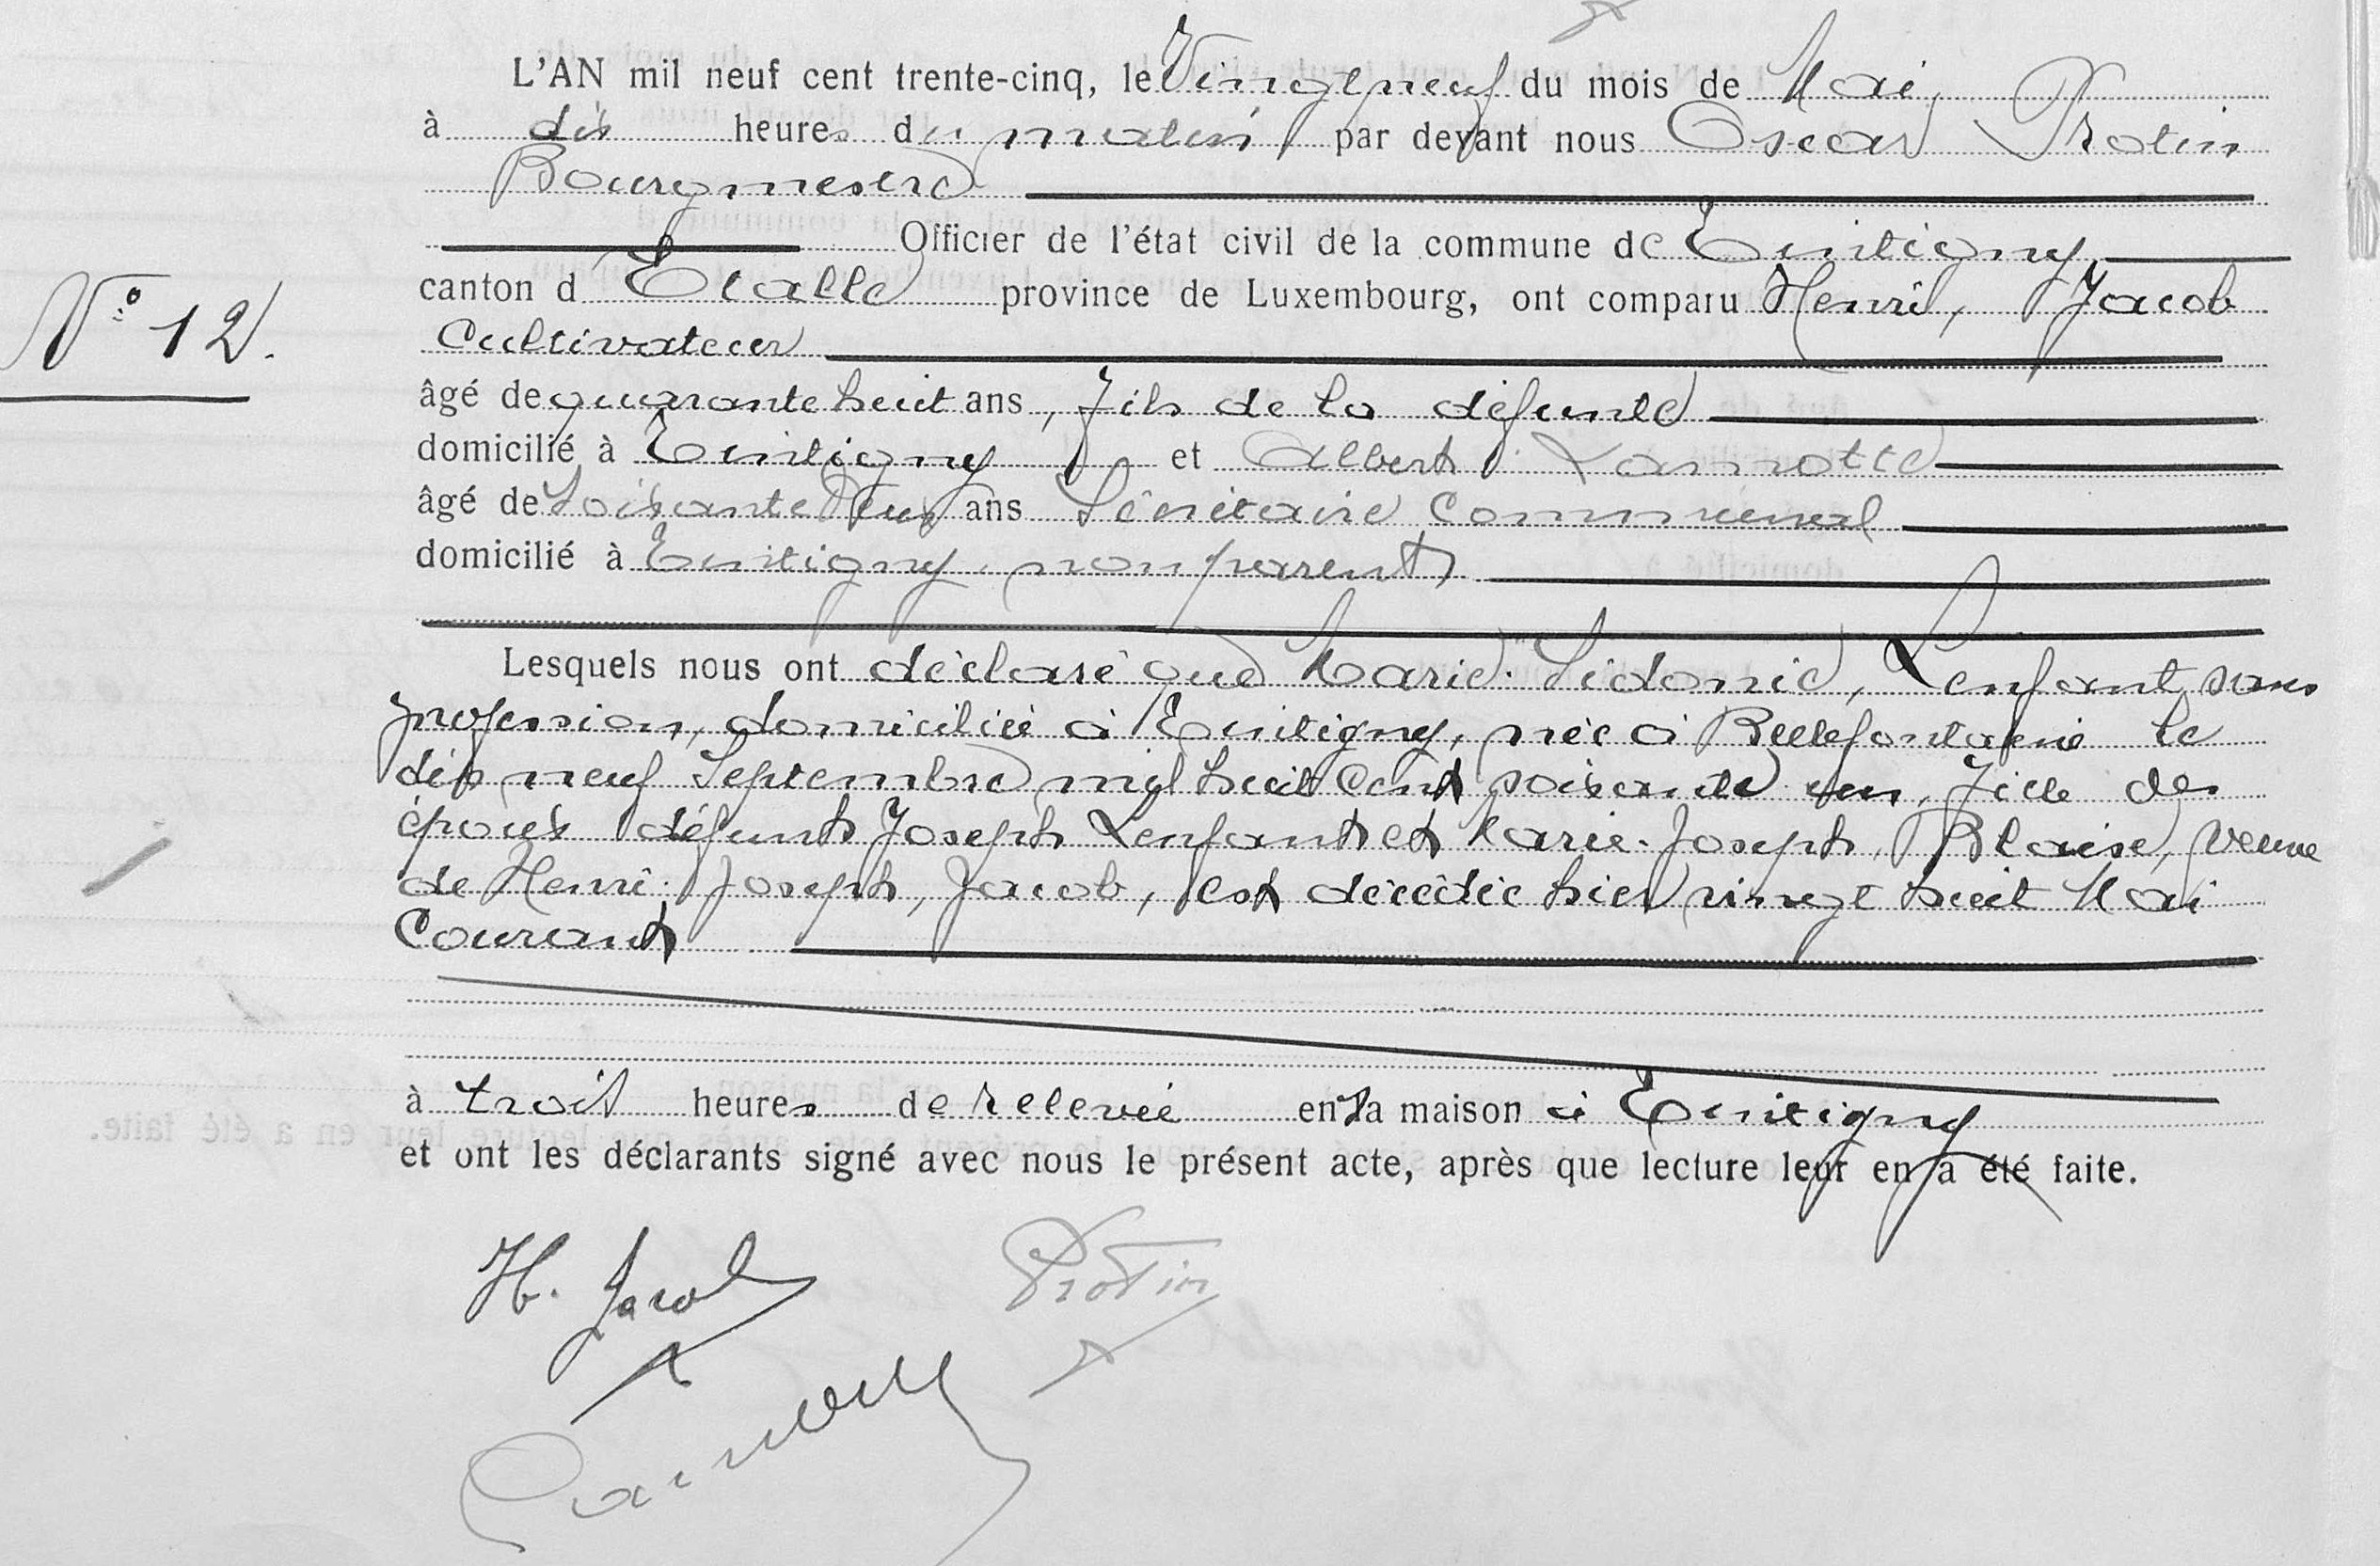 L'AN mil neuf cent trente-cinq, le Vingt neuf du mois de Mai,
à dix heures du matin par devant nous Oscar Protin
Bourgmestre
Officier de l'état civil de la commune de Tintigny
N° 12.
canton d'Etalle province de Luxembourg, ont comparu Henri, Jacob
Cultivateur
âgé de quarante huit ans, fils de la défunte
domicilié à Tintigny et Albert Lamotte
âgé de Soixante deux ans Secrétaire Communal
domicilié à Tintigny, non parent
Lesquels nous ont déclaré que Marie-Sidonie, Lenfant, sans
profession, domiciliée à Tintigny, née à Bellefontaine le
dix neuf Septembre mil huit cent soixante un, fille des
époux défunts Joseph Lenfant et Marie-Joseph, Blaise, veuve
de Henri-Joseph, Jacob, est décédée hier vingt huit Mai
Courant
à trois heures de relevée en sa maison à Tintigny
et ont les déclarants signé avec nous le présent acte, après que lecture leur en a été faite.
H. Jacob Protin
Lamotte